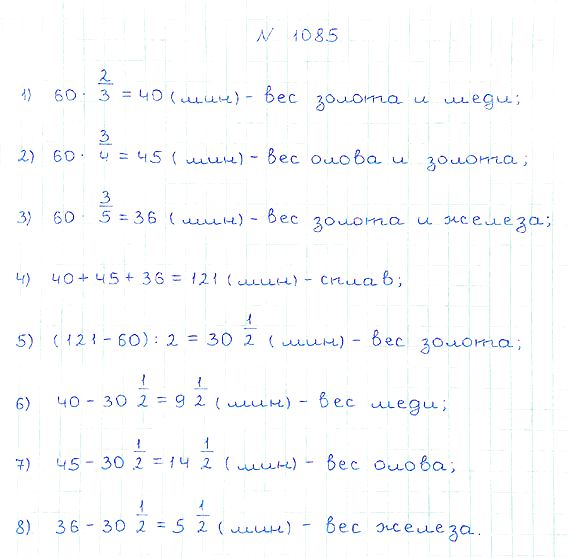 N 1085
1) 60 · 2/3 = 40 (мин) - вес золота и меди;
2) 60 · 3/4 = 45 (мин) - вес олова и золота;
3) 60 · 3/5 = 36 (мин) - вес золота и железа;
4) 40 + 45 + 36 = 121 (мин) - сплав;
5) (121 - 60) : 2 = 30 1/2 (мин) - вес золота;
6) 40 - 30 1/2 = 9 1/2 (мин) - вес меди;
7) 45 - 30 1/2 = 14 1/2 (мин) - вес олова;
8) 36 - 30 1/2 = 5 1/2 (мин) - вес железа.